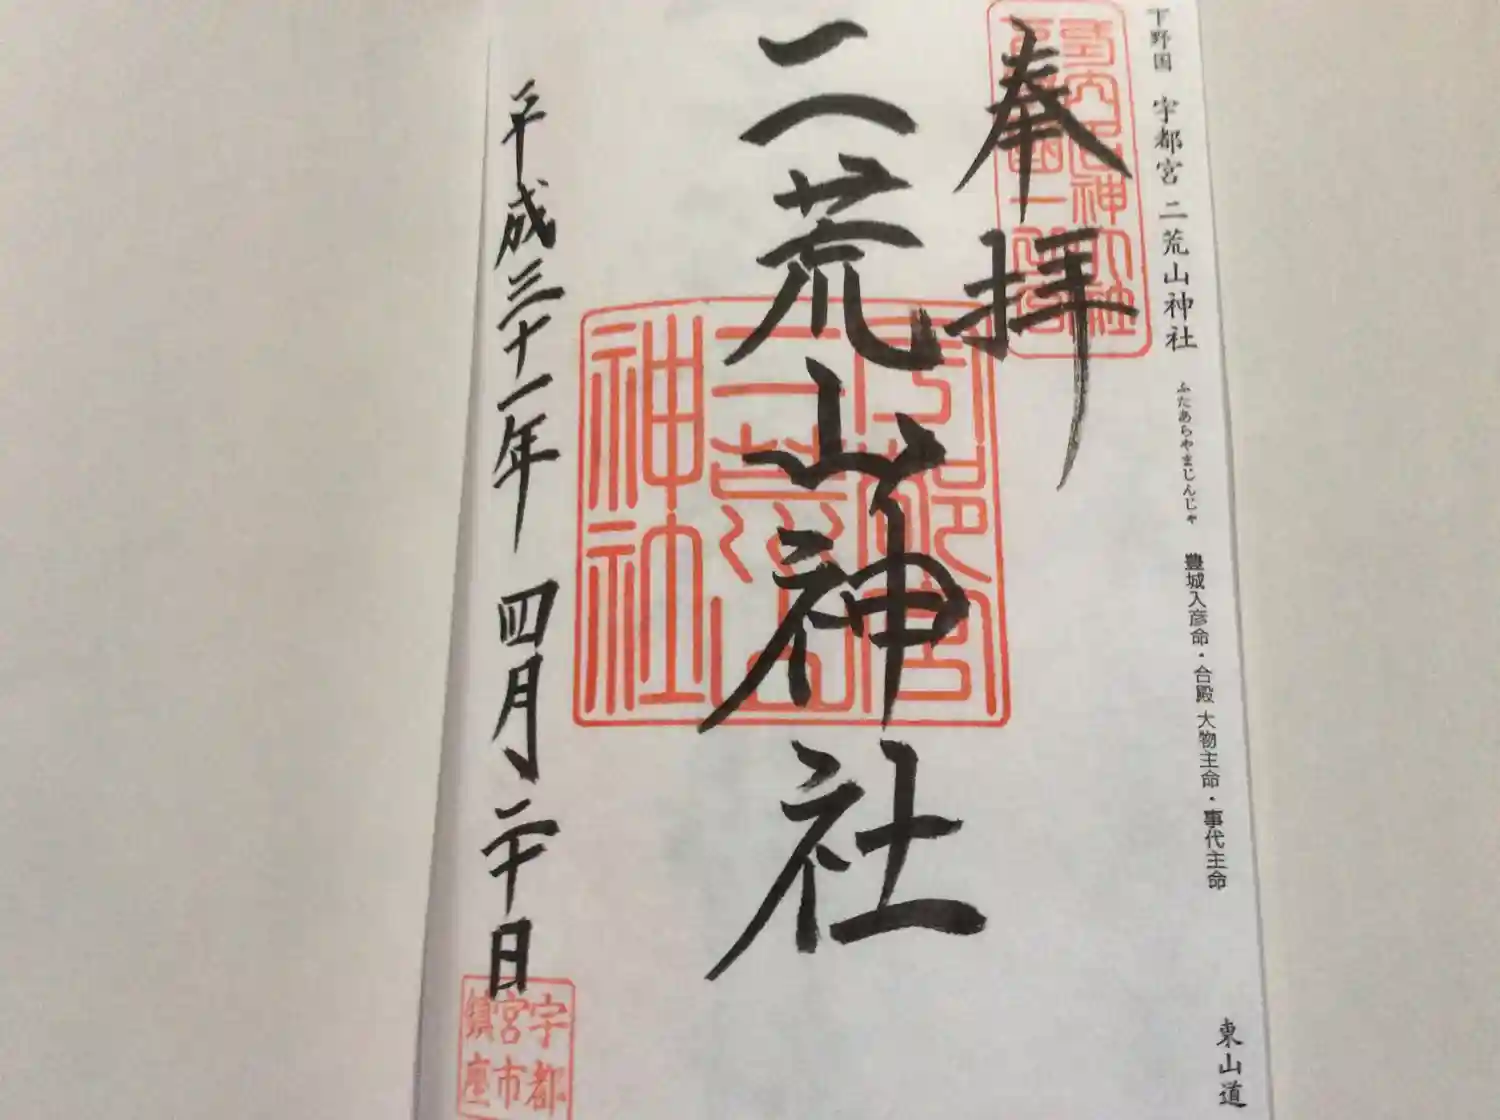 下野国 宇都宮 二荒山神社 ふたあらやまじんじゃ 豊城入彦命・合殿 大物主命・事代主命 東山道
奉拝
二荒山神社
平成三十一年 四月二十日
宇都宮
二荒山
神社
宇都
宮市
鎮座